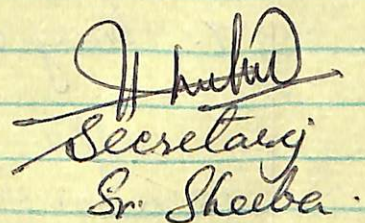 Secretary
Sr. Sheeba.